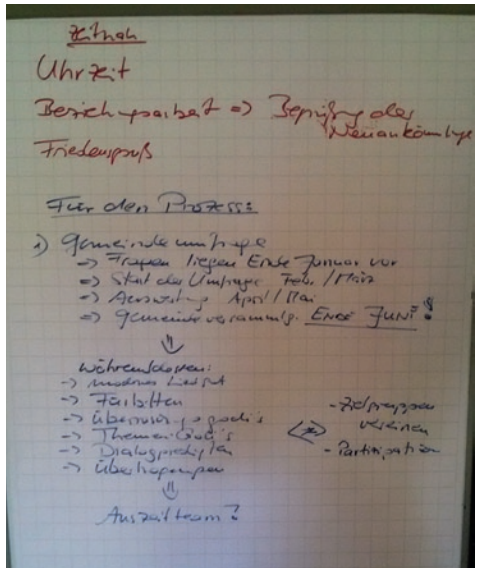 zeitnah
Uhrzeit
Beziehungsarbeit => Begrüßung der
Neuankömmlinge
Friedensgruß
Für den Prozess:
1) Gemeindeumfrage
=> Fragen liegen Ende Januar vor
=> Start der Umfrage Feb. / März
=> Auswertung April / Mai
=> Gemeindeversammlg. ENDE JUNI!
⇓
währenddessen:
-> modernes Liedgut
-> Fürbitten
->
-> Themen Godi's
-> Dialogpredigten
-> Übertragungen
- Zielgruppen
vereinen
- Partizipation
⇓
Auszeitteam?